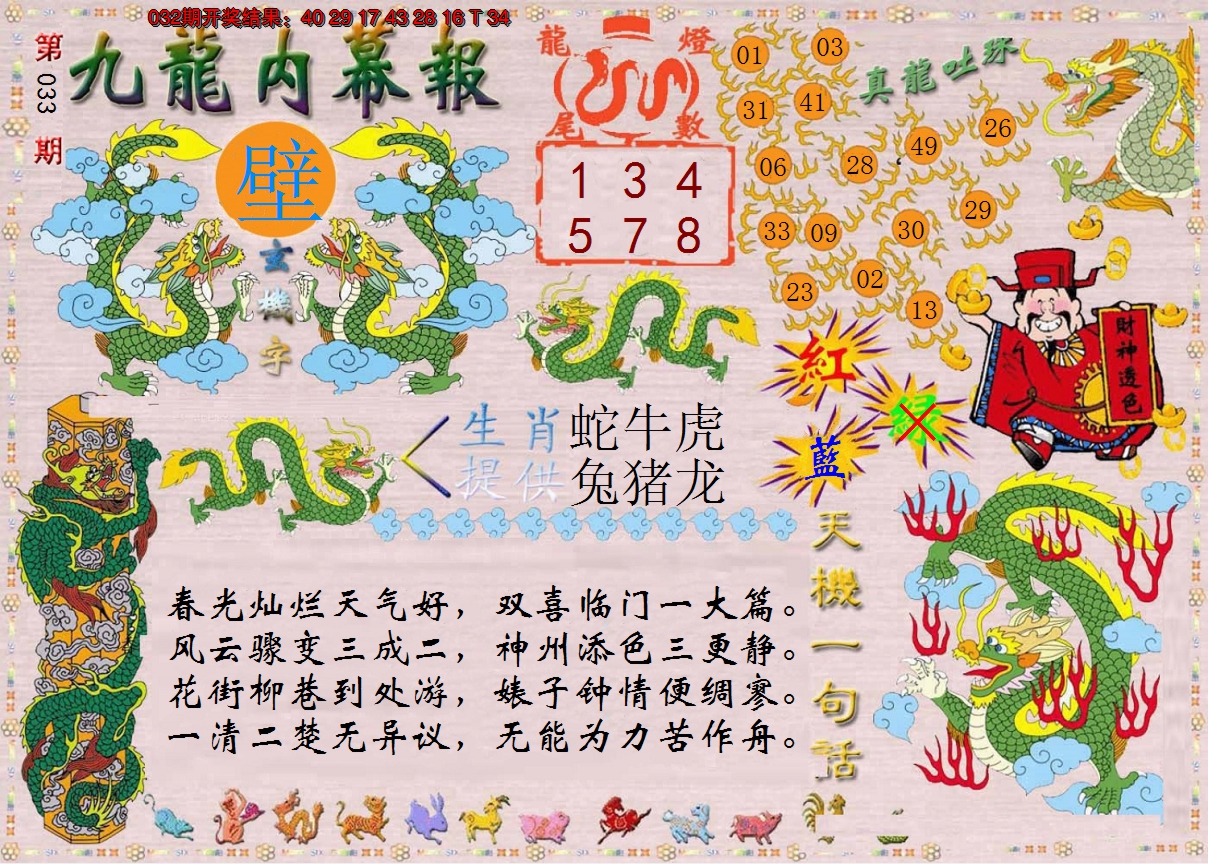 032期开奖结果：40 29 17 43 28 16 T 34
第033期
九龍内幕報
壁
玄機字
龍燈
尾數
1 3 4
5 7 8
真龍吐珠
01
03
31
41
06
28
49
26
33
09
30
29
23
02
13
財神透色
紅
绿
藍
生肖
提供
蛇牛虎
兔猪龙
天機一句話
春光灿烂天气好，双喜临门一大篇。
风云骤变三成二，神州添色三更静。
花街柳巷到处游，婊子钟情便绸寥。
一清二楚无异议，无能为力苦作舟。